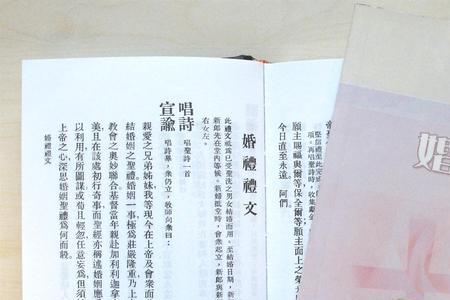 婚
願主賜福與爾等保全爾等願主面上之
今日直至永遠。阿們。
婚禮禮文
此禮文祗為已受聖洗之男女結婚而用。至結婚日期，新
新郎先在堂內等候。新婦抵堂時，會衆起立，新郎與新
右女左。
唱詩 唱聖詩一首
宣諭 唱詩畢，衆仍立，牧師向衆曰：
親愛之兄弟姊妹我等現今在上帝及會衆面
結婚姻之聖禮婚姻一事極為莊嚴隆重乃上
教會之奧妙聯合基督當年親赴加利利迦拿
美且在該處初行奇事而聖經亦稱述婚姻應
以利用有所圖謀或苟且輕忽任意妄為但須
上帝之心深思婚姻聖禮為何而設。
婚禮禮文